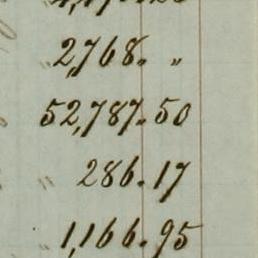 2,768. "
52,787.50
" 286.17
" 1,166.95